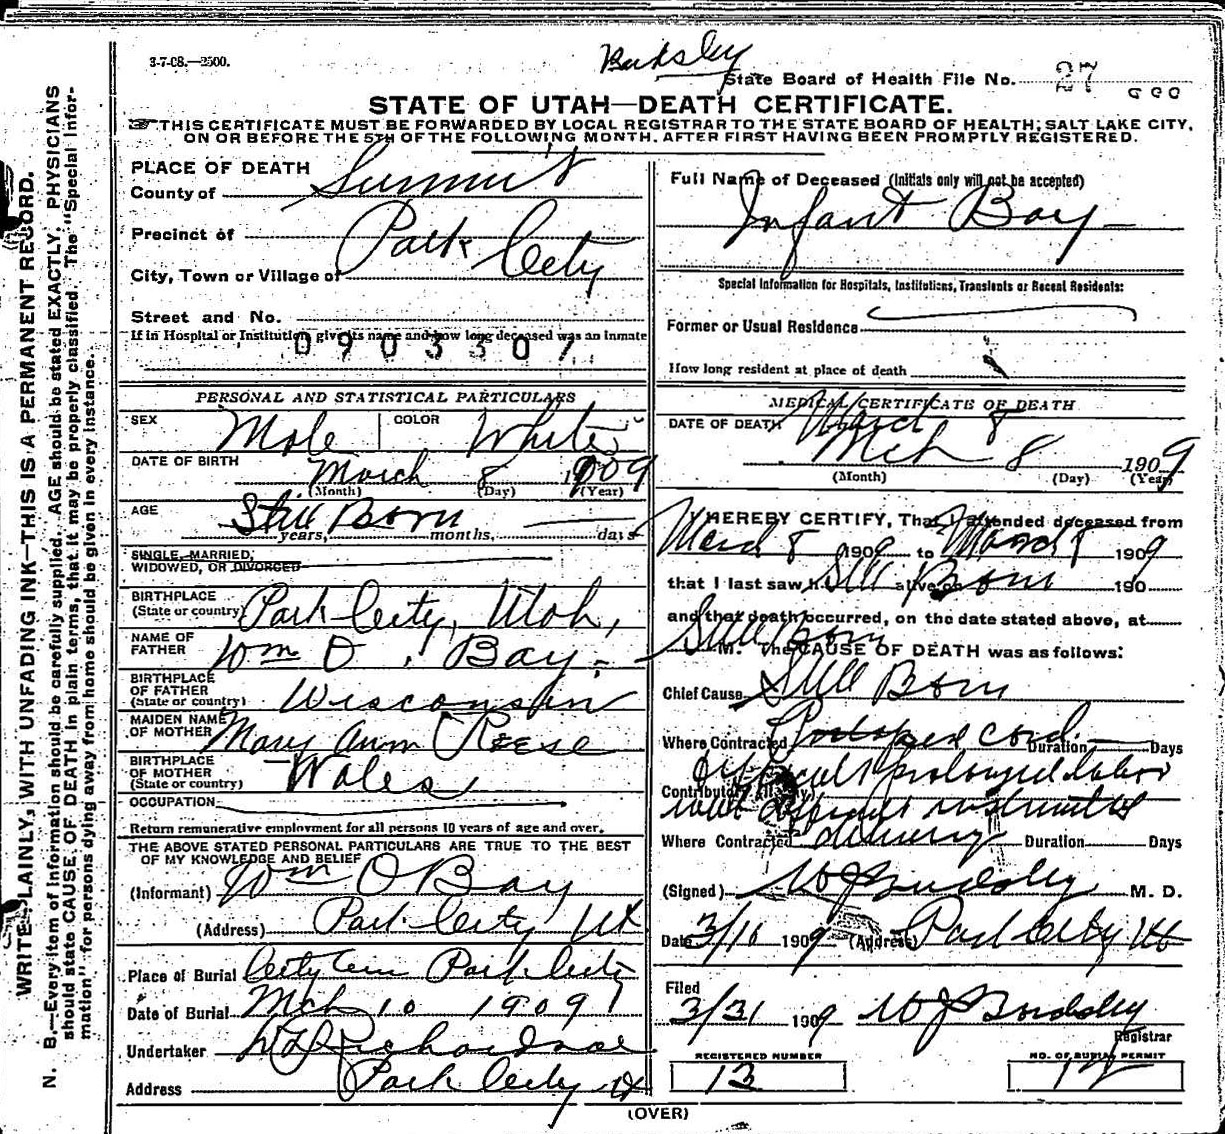 3-7-08.—2500.
Bardsley
State Board of Health File No. 27
STATE OF UTAH—DEATH CERTIFICATE.
THIS CERTIFICATE MUST BE FORWARDED BY LOCAL REGISTRAR TO THE STATE BOARD OF HEALTH, SALT LAKE CITY,
ON OR BEFORE THE 5TH OF THE FOLLOWING MONTH, AFTER FIRST HAVING BEEN PROMPTLY REGISTERED.
WRITE PLAINLY, WITH UNFADING INK—THIS IS A PERMANENT RECORD.
N. B.—Every item of information should be carefully supplied. AGE should be stated EXACTLY. PHYSICIANS
should state CAUSE OF DEATH in plain terms, that it may be properly classified. The "Special Infor-
mation" for persons dying away from home should be given in every instance.
PLACE OF DEATH
County of Summit
Precinct of
City, Town or Village of Park City
Street and No.
If in Hospital or Institution, give its name and how long deceased was an inmate
0903307
PERSONAL AND STATISTICAL PARTICULARS
SEX Male COLOR White
DATE OF BIRTH March 8 1909
(Month) (Day) (Year)
AGE Still Born
years, months, days
SINGLE, MARRIED,
WIDOWED, OR DIVORCED
BIRTHPLACE
(State or country) Park City, Utah,
NAME OF
FATHER Wm O. Bay.
BIRTHPLACE
OF FATHER
(State or country) Wisconsin
MAIDEN NAME
OF MOTHER Mary Ann Reese
BIRTHPLACE
OF MOTHER
(State or country) Wales
OCCUPATION
Return remunerative employment for all persons 10 years of age and over.
THE ABOVE STATED PERSONAL PARTICULARS ARE TRUE TO THE BEST
OF MY KNOWLEDGE AND BELIEF
(Informant) Wm O Bay
(Address) Park City Ut
Place of Burial City Cem Park City
Date of Burial Mch 10 1909
Undertaker Richardson
Address Park City Ut
Full Name of Deceased (Initials only will not be accepted)
Infant Bay
Special Information for Hospitals, Institutions, Transients or Recent Residents:
Former or Usual Residence
How long resident at place of death
MEDICAL CERTIFICATE OF DEATH
DATE OF DEATH March 8
Mch 8 1909
(Month) (Day) (Year)
I HEREBY CERTIFY, That I attended deceased from
March 8 1909 to March 8 1909
that I last saw h Still alive on Born 190
and that death occurred, on the date stated above, at
Still Born M. The CAUSE OF DEATH was as follows:
Chief Cause Still Born
Where Contracted Prolapsed cord. Duration Days
difficult prolonged labor
Contributory if any
with difficult instrumental
Where Contracted delivery Duration Days
(Signed) W J Bardsley M. D.
Date 3/10 1909 (Address) Park City Ut
Filed
3/31 1909 W J Bardsley
Registrar
REGISTERED NUMBER
13
NO. OF BURIAL PERMIT
(OVER)